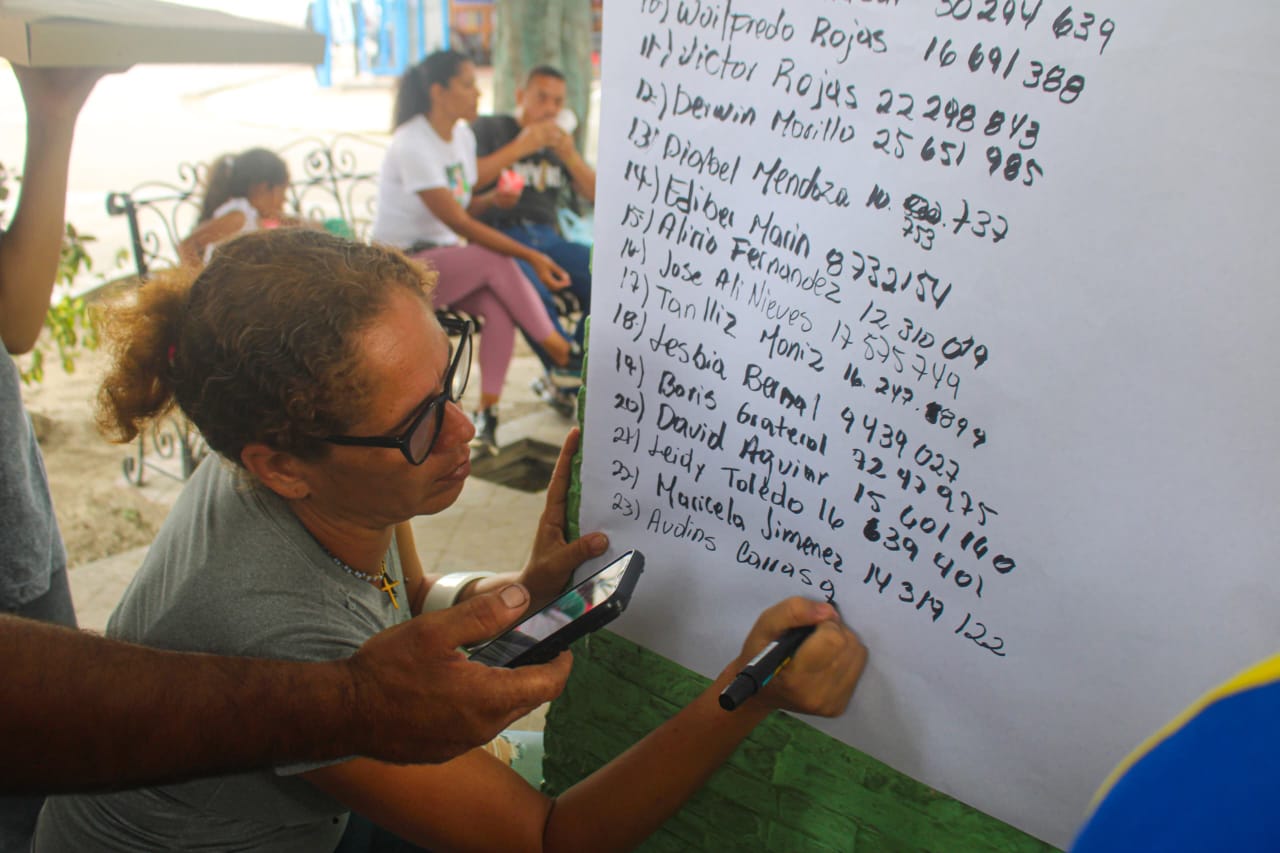 30 294 639
10) Wuilfredo Rojas 16 691 388
11-) Victor Rojas 22 248 843
12-) Derwin Morillo 25 651 985
13) Diosbel Mendoza 10. 753 .737
14-) Ediber Marin 8732154
15) Alirio Fernandez 12 310 019
16) Jose Ali Nieves 17 575749
17) Tanlliz Moniz 16.247.899
18-) Lesbia Bernal 9439 027
19-) Boris Graterol 72 47975
20) David Aguiar 15 601 140
21) Leidy Toledo 16 639 401
22) Maricela Jimenez 14 319 122
23) Audins Carrasq